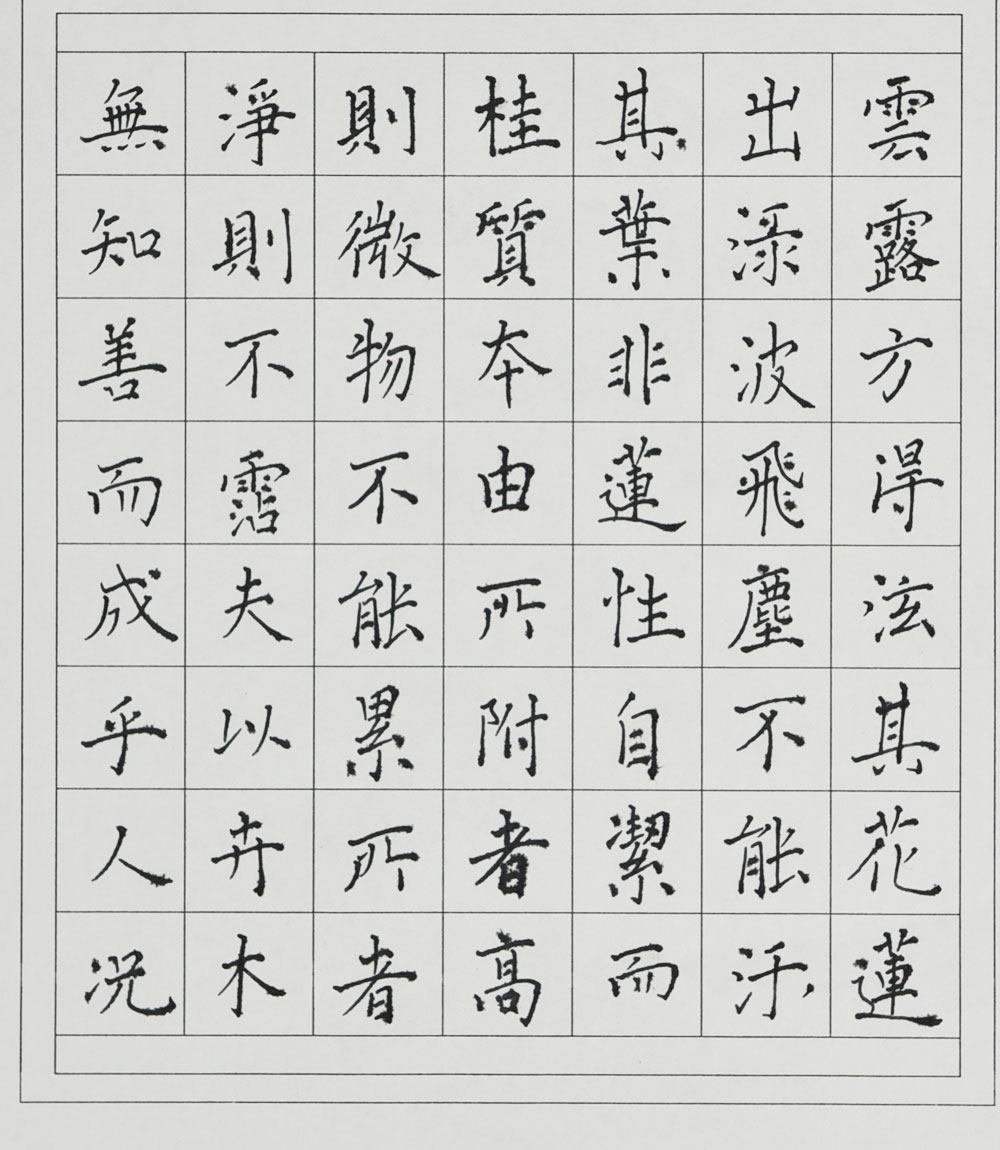 雲露方得泫其花蓮
出渌波飛塵不能汙
其葉非蓮性自潔而
桂質本由所附者高
則微物不能累所者
淨則不霑夫以卉木
無知善而成乎人況